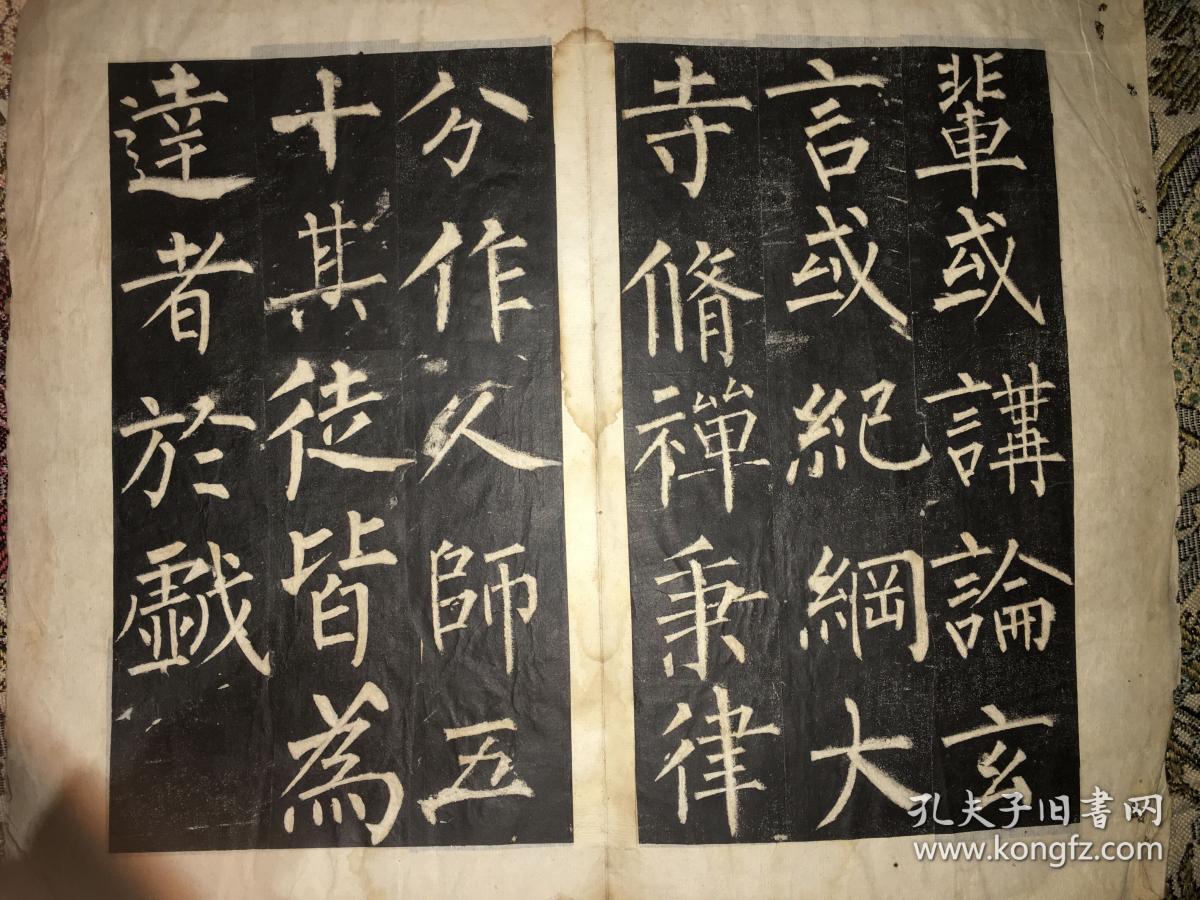 輩或講論玄
言或紀綱大
寺脩禪秉律
分作人師五
十其徒皆為
達者於戱
孔夫子旧書网
www.kongfz.com